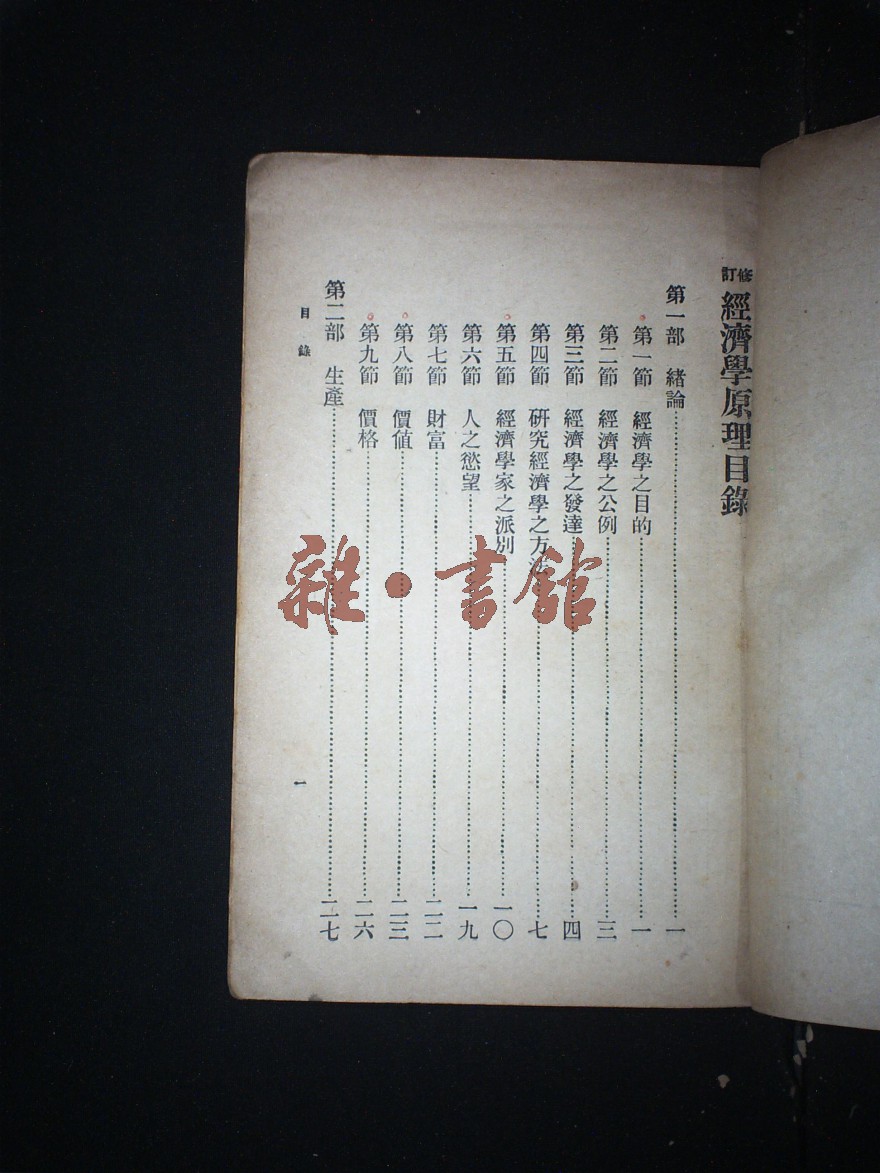 修訂 經濟學原理目錄
第一部 緒論……一
第一節 經濟學之目的……一
第二節 經濟學之公例……三
第三節 經濟學之發達……四
第四節 研究經濟學之方法……七
第五節 經濟學家之派別……一〇
第六節 人之慾望……一九
第七節 財富……二二
第八節 價值……二三
第九節 價格……二六
第二部 生產……二七
目錄
一
雜·書館